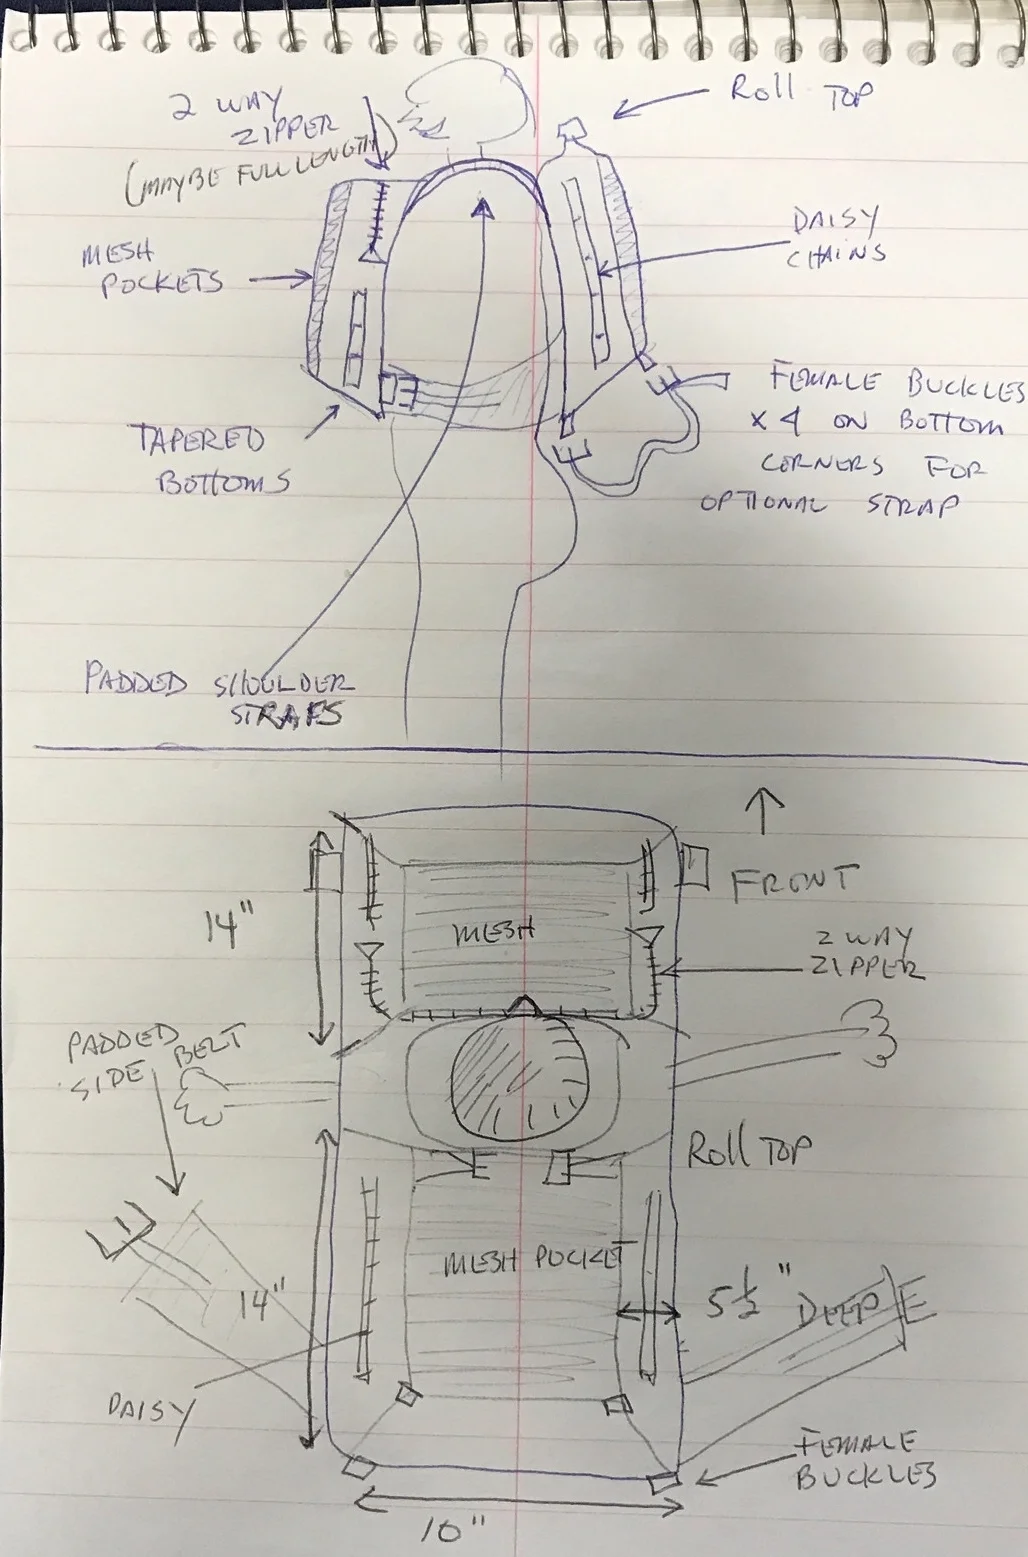 2 WAY
ZIPPER
(MAYBE FULL LENGTH)
Roll TOP
MESH
POCKETS
DAISY
CHAINS
TAPERED
BOTTOMS
FEMALE BUCKLES
x 4 ON BOTTOM
CORNERS FOR
OPTIONAL STRAP
PADDED SHOULDER
STRAPS
FRONT
14"
MESH
2 WAY
ZIPPER
PADDED
SIDE BELT
Roll TOP
MESH POCKET
14"
5 1/2" DEEP
DAISY
FEMALE
BUCKLES
10"